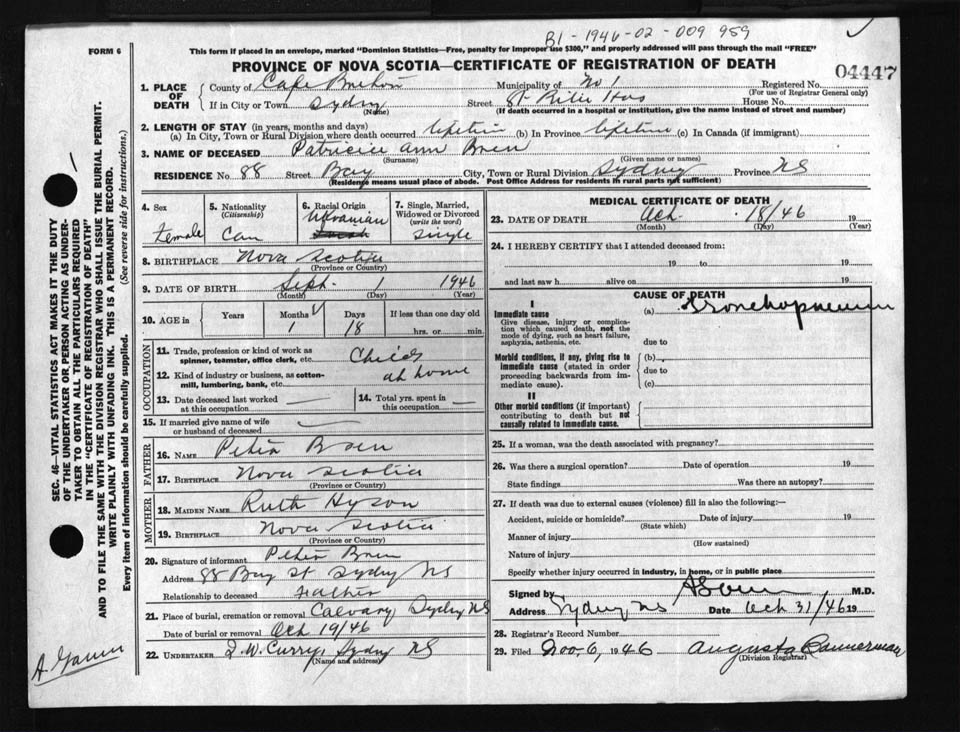 B1 - 1946-02-009 959
FORM 6
This form if placed in an envelope, marked "Dominion Statistics—Free, penalty for improper use $300," and properly addressed will pass through the mail "FREE"
PROVINCE OF NOVA SCOTIA—CERTIFICATE OF REGISTRATION OF DEATH
04447
1. PLACE OF DEATH
County of Cape Breton Municipality of No 1 Registered No.
(For use of Registrar General only)
If in City or Town Sydney Street St Rita Hos House No.
(Name) (If death occurred in a hospital or institution, give the name instead of street and number)
2. LENGTH OF STAY (in years, months and days)
(a) In City, Town or Rural Division where death occurred lifetime (b) In Province lifetime (c) In Canada (if immigrant)
3. NAME OF DECEASED Patricia Ann
(Surname) (Given name or names)
RESIDENCE No. 88 Street Bay City, Town or Rural Division Sydney Province NS
(Residence means usual place of abode. Post Office Address for residents in rural parts not sufficient)
4. Sex
Female
5. Nationality
(Citizenship)
Can
6. Racial Origin
Ukranian
7. Single, Married, Widowed or Divorced
(write the word)
Single
8. BIRTHPLACE Nova Scotia
(Province or Country)
9. DATE OF BIRTH Sept. 1 1946
(Month) (Day) (Year)
10. AGE in Years Months Days If less than one day old
1 18 hrs. or min.
OCCUPATION
11. Trade, profession or kind of work as spinner, teamster, office clerk, etc. Child
12. Kind of industry or business, as cotton-mill, lumbering, bank, etc. at home
13. Date deceased last worked at this occupation
14. Total yrs. spent in this occupation
15. If married give name of wife or husband of deceased
FATHER
16. Name Peter
17. Birthplace Nova Scotia
(Province or Country)
MOTHER
18. Maiden Name Ruth Hyson
19. Birthplace Nova Scotia
(Province or Country)
20. Signature of informant Peter
Address 88 Bay St Sydney NS
Relationship to deceased Father
21. Place of burial, cremation or removal Calvary Sydney NS
Date of burial or removal Oct 19/46
22. UNDERTAKER J.W. Curry, Sydney NS
(Name and address)
MEDICAL CERTIFICATE OF DEATH
23. DATE OF DEATH Oct. 18/46 19
(Month) (Day) (Year)
24. I HEREBY CERTIFY that I attended deceased from:
19 to 19
and last saw h alive on 19
CAUSE OF DEATH
I
Immediate cause (a) Bronchopneumonia
Give disease, injury or complication which caused death, not the mode of dying, such as heart failure, asphyxia, asthenia, etc.
due to
Morbid conditions, if any, giving rise to immediate cause (stated in order proceeding backwards from immediate cause).
(b)
due to
(c)
II
Other morbid conditions (if important) contributing to death but not causally related to immediate cause.
25. If a woman, was the death associated with pregnancy?
26. Was there a surgical operation? Date of operation 19
State findings Was there an autopsy?
27. If death was due to external causes (violence) fill in also the following:—
Accident, suicide or homicide? Date of injury 19
(State which)
Manner of injury
(How sustained)
Nature of injury
Specify whether injury occurred in industry, in home, or in public place
Signed by M.D.
Address Sydney NS Date Oct 31/46 19
28. Registrar's Record Number
29. Filed Nov. 6, 1946 Augusta Bannerman
(Division Registrar)
SEC. 46—VITAL STATISTICS ACT MAKES IT THE DUTY
OF THE UNDERTAKER OR PERSON ACTING AS UNDER-
TAKER TO OBTAIN ALL THE PARTICULARS REQUIRED
IN THE "CERTIFICATE OF REGISTRATION OF DEATH"
AND TO FILE THE SAME WITH THE DIVISION REGISTRAR WHO SHALL ISSUE THE BURIAL PERMIT.
WRITE PLAINLY WITH UNFADING INK. THIS IS A PERMANENT RECORD.
Every item of information should be carefully supplied. (See reverse side for instructions.)